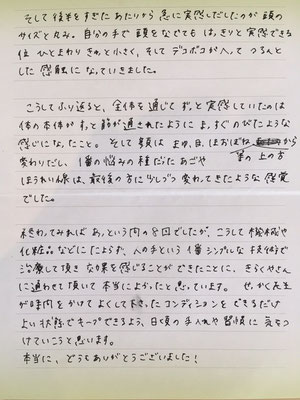 そして後半をすぎたあたりから急に実感しだしたのが頭の
サイズと丸み。自分の手で頭をなでても はっきりと実感できる
位 ひとまわり きゅっと小さく、そして デコボコが入って つるんと
した 感触に なっていきました。
こうして ふり返ると、全体を通じて ずっと実感していたのは
体の本体が すっと筋が通されたように まっすぐのびたような
感じになったこと。そして 顔は まゆ、目、ほおぼね から
変わりだし、1番の悩みの種だった あごや 等の上の方
ほうれい線は、最後の方に少しづつ 変わってきたような感覚
でした。
終わってみれば あっという間の8回でしたが、こうして 機械や
化粧品などにたよらず、人の手という 1番シンプルな 技術で
治療して頂き 効果を感じることが できたことに、きらくやさん
に通わせて頂いて 本当によかったと思っています。 せっかく先生
が時間をかけて よくして下さった コンディションを できるだけ
よい状態で キープできるよう、日頃の 手入れや 習慣に 気をつ
けていこうと思います。
本当に、どうもありがとうございました!